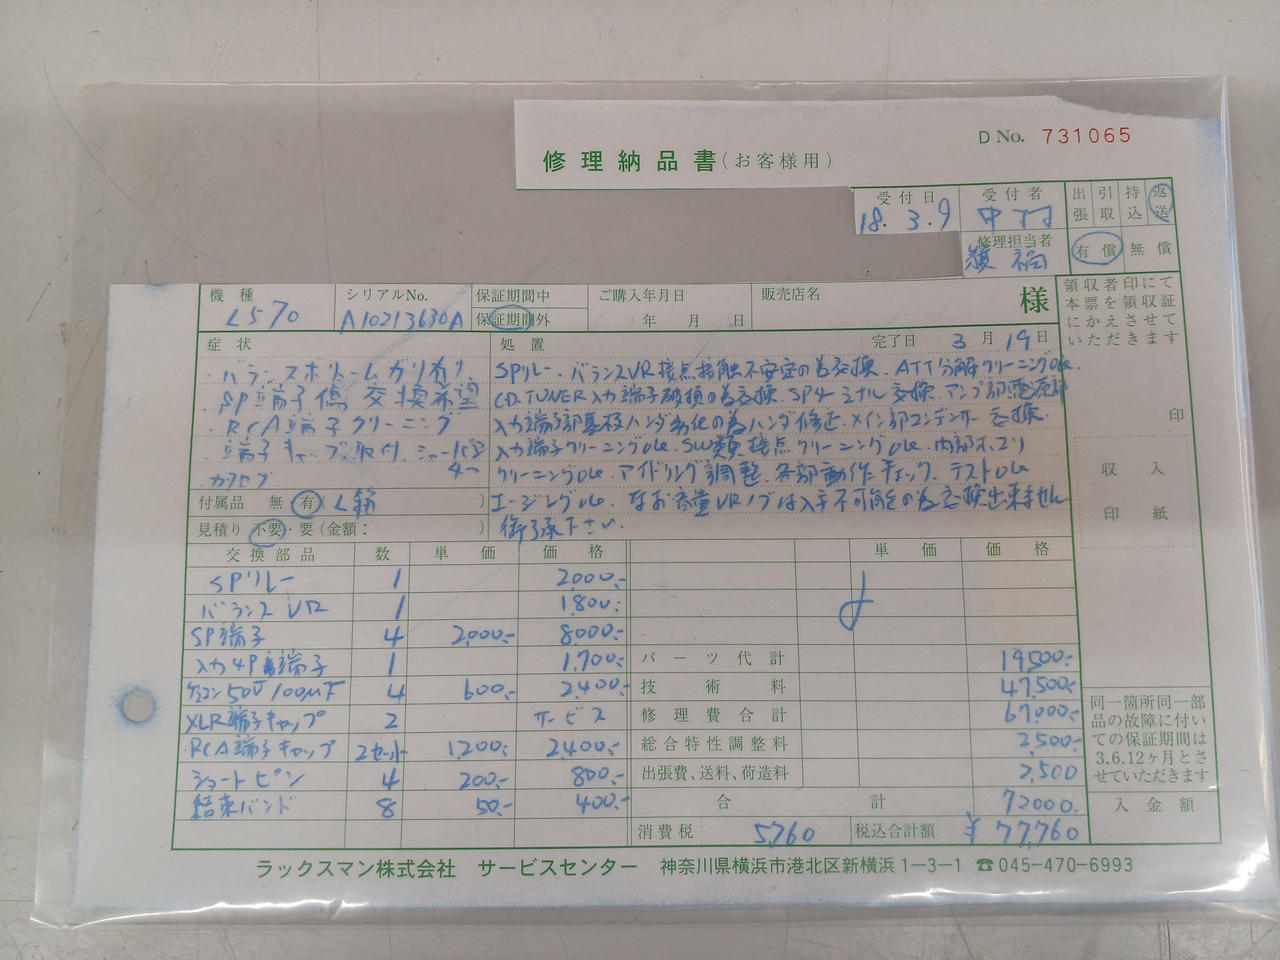 D No. 731065
修理納品書(お客様用)
受付日 受付者 出張 引取 持込 返送
18.3.9 中村
修理担当者 有償 無償
機種 シリアルNo. 保証期間中 ご購入年月日 販売店名 様
L570 A10213630A 保証期間外 年 月 日
領収者印にて
本票を領収証
にかえさせて
いただきます
印
収入
印紙
症状 処置 完了日 3月19日
バランスボリュームガリ有り、
SP端子傷交換希望
RCA端子クリーニング
端子キャップ取付、ショートピン
4つ
SPリレー、バランスVR接点接触不安定の為交換、ATT分解クリーニングOK
CD.TUNER入力端子破損の為交換 SPターミナル交換、アンプ部電源部
入力端子部基板ハンダ劣化の為ハンダ修正、メイン部コンデンサー交換、
入力端子クリーニングOK、SW類接点クリーニングOK、内部ホコリ
クリーニングOK アイドリング調整、各部動作チェック、テストOK
エージングOK、なお音量VRノブは入手不可能の為交換出来ません
御了承下さい。
付属品 無 有( )
見積り 不要・要(金額: )
交換部品 数 単価 価格 単価 価格
SPリレー 1 2000.-
バランスVR 1 1800.-
SP端子 4 2000.- 8000.-
入力4P端子 1 1,700.-
パーツ代計 19500.-
ケミコン50V100μF 4 600.- 2,400.-
技術料 47,500.-
XLR端子キャップ 2 サービス
修理費合計 67,000.-
RCA端子キャップ 2セット 1200.- 2400.-
総合特性調整料 2,500.-
ショートピン 4 200.- 800.-
出張費、送料、荷造料 2,500
結束バンド 8 50.- 400.-
合計 72000.
消費税 5,760 税込合計額 ¥77,760
同一箇所同一部
品の故障に付い
ての保証期間は
3.6.12ヶ月とさ
せていただきます
入金額
ラックスマン株式会社 サービスセンター 神奈川県横浜市港北区新横浜1-3-1 ☎045-470-6993